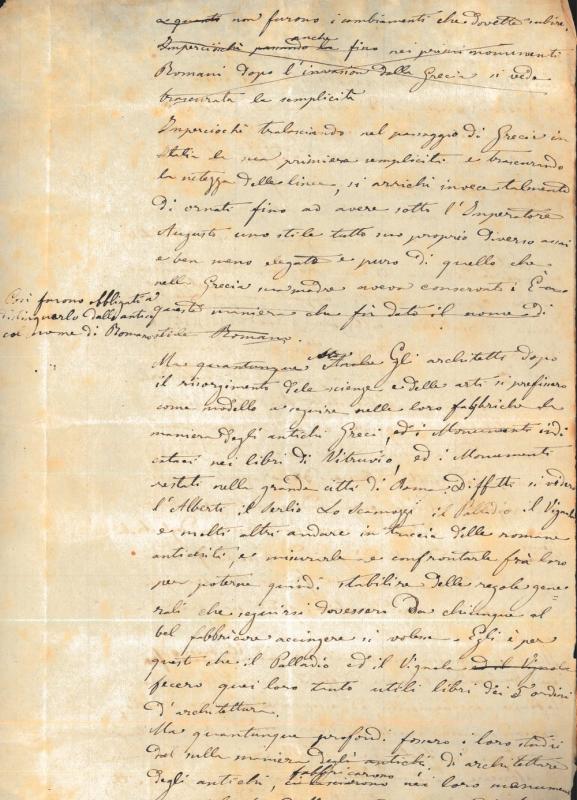 e quanto non furono i cambiamenti che dovette subire.
Imperciochè passando la anche fino nei primi monumenti
Romani dopo l'invasion della Grecia si vede
trascurata la semplicità
Imperciochè tralasciando nel passaggio di Grecia in
Italia la sua primiera semplicità e trascurando
la netezza delle linee, si arrichì invece talmente
di ornati fino ad avere sotto l'Imperatore
Augusto uno stile tutto suo proprio diverso assai
e ben meno elegante e puro di quello che
nella Grecia sua madre aveva conservati
Così furono obbligati a
distinguerlo dallo antico
col nome di Romano
questa maniera che fu dato il nome di
stile Romano.
Ma quantunque Anche Gli architetti dopo
il risorgimento dele scienze e delle arti si prefissero
come modello a seguire nelle loro fabbriche la
maniera degli antichi Greci, ed i Monumenti indi
cataci nei libri di Vitruvio, ed i Monumenti
restati nella grande città di Roma. Diffatti si videro
l'Alberti il Serlio Lo Scamozzi il Palladio il Vignola
e molti altri andare in traccia delle romane
antichità, e misurarle e confrontarle frà loro
per poterne quindi stabilire delle regole gene=
rali che seguirsi dovessero Da chiunque al
bel fabbricare accingere si volesse. Egli è per
questo che il Palladio ed il Vignola ed il Vignola
fecero quei loro tanto utili libri dei 5 ordini
d'architettura.
Ma quantunque profondi fossero i loro studii
sulla maniera degli antichi di architettare
degli antichi, fabbricarono nei loro monumen